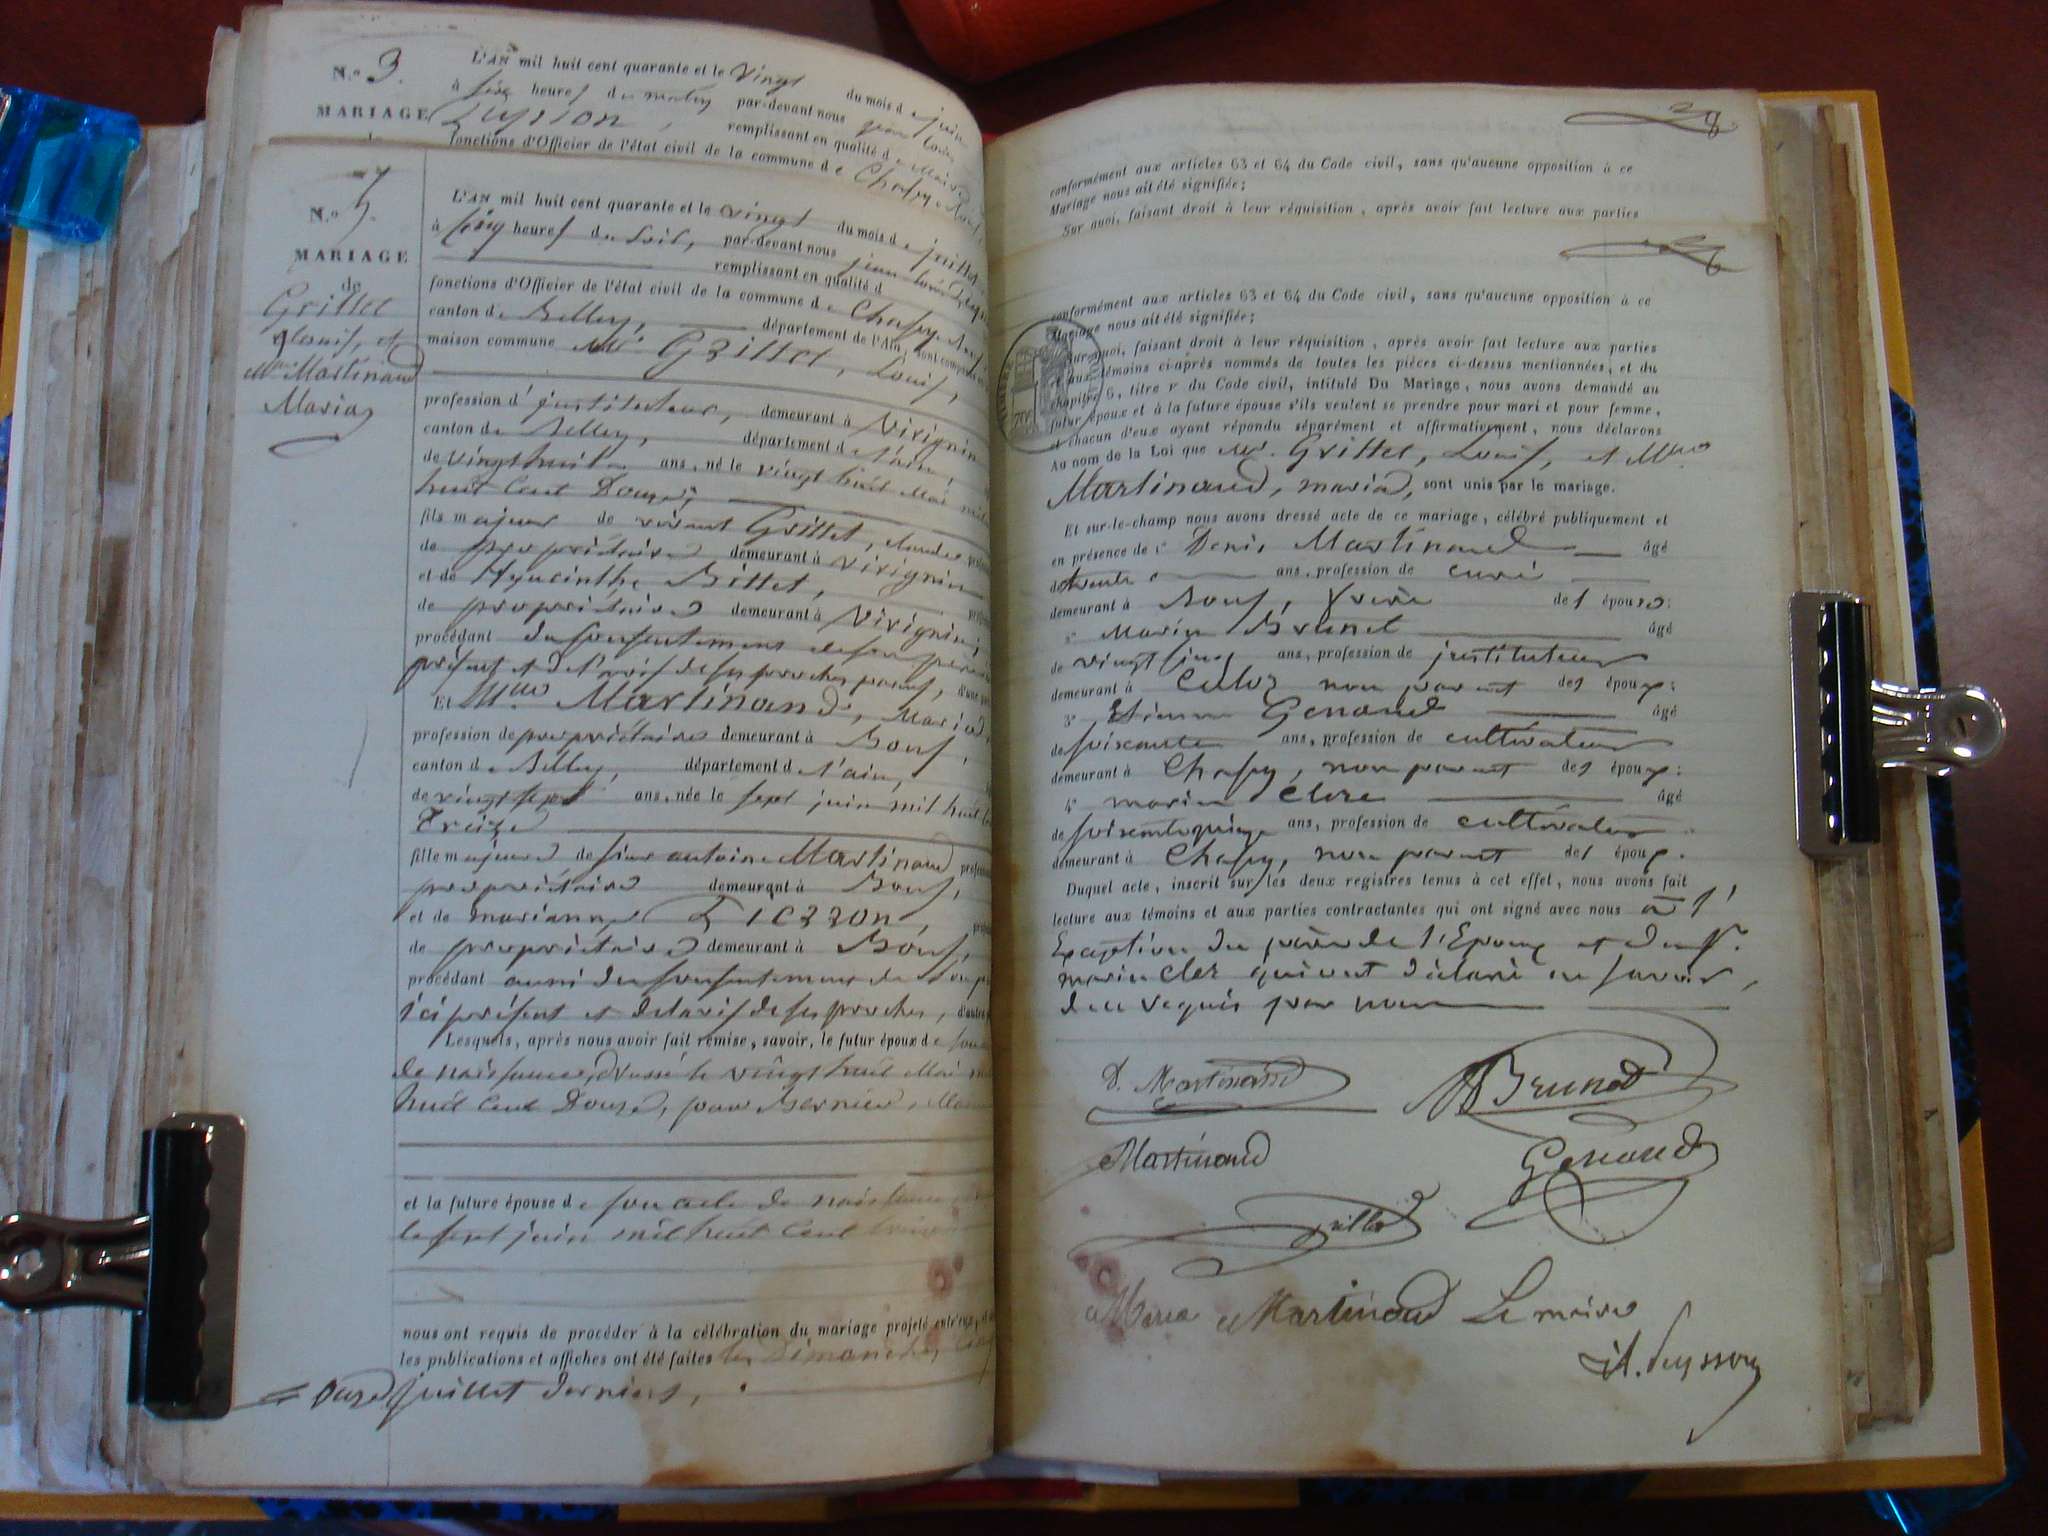 N.o 3.
MARIAGE
L'AN mil huit cent quarante et le vingt du mois de juin
à six heures du matin par-devant nous jean louis
Peysson, remplissant en qualité de Maire
fonctions d'Officier de l'état civil de la commune de Chazey
N.o 5.
MARIAGE
de
Grillet
Louis, et
Mlle Martinaud
Maria
L'AN mil huit cent quarante et le vingt du mois de juillet
à cinq heures du soir, par-devant nous jean louis
remplissant en qualité d
fonctions d'Officier de l'état civil de la commune de Chazey
canton de Belley, département de l'Ain, sont comp
maison commune Mr Grillet, Louis,
profession d'instituteur, demeurant à Virignin
canton de Belley, département de l'ain,
de vingt huit ans, né le vingt huit Mai
huit cent Douze,
fils majeur de vivant Grillet, claude
de propriétaire demeurant à Virignin
et de Hyacinthe Billet,
de propriétaire demeurant à Virignin,
procédant du consentement de son père
présent et de l'avis de ses proches
Et Mlle Martinand, Maria,
profession de propriétaire demeurant à Bons,
canton de Belley, département de l'ain,
de vingt sept ans, née le sept juin mil huit
Treize
fille majeure de sieur antoine Martinaud
propriétaire demeurant à Bons,
et de marianne
de propriétaire demeurant à Bons,
procédant aussi du consentement de son
ici présent et de l'avis de ses proches, d'autre
Lesquels, après nous avoir fait remise, savoir, le futur époux de son
de naissance, dressé le vingt huit Mai
huit cent Douze, par Bernier,
et la future épouse de son acte de naissance
le sept juin mil huit cent
nous ont requis de procéder à la célébration du mariage projeté entr'eux, et
les publications et affiches ont été faites les Dimanches
juillet derniers,
28
conformément aux articles 63 et 64 du Code civil, sans qu'aucune opposition à ce
Mariage nous ait été signifiée;
Sur quoi, faisant droit à leur réquisition, après avoir fait lecture aux parties
conformément aux articles 63 et 64 du Code civil, sans qu'aucune opposition à ce
Mariage nous ait été signifiée;
Sur quoi, faisant droit à leur réquisition, après avoir fait lecture aux parties
et aux témoins ci-après nommés de toutes les pièces ci-dessus mentionnées, et du
chapitre 6, titre V du Code civil, intitulé Du Mariage, nous avons demandé au
futur époux et à la future épouse s'ils veulent se prendre pour mari et pour femme,
et chacun d'eux ayant répondu séparément et affirmativement, nous déclarons
Au nom de la Loi que Mr. Grillet, Louis, et Mlle
Martinaud, maria, sont unis par le mariage.
Et sur-le-champ nous avons dressé acte de ce mariage, célébré publiquement et
en présence de 1° Denis Martinaud âgé
de trente ans, profession de curé
demeurant à Bons, frère de l'épouse;
2° Marin Brunet âgé
de vingt cinq ans, profession de instituteur
demeurant à Culoz non parent des époux;
3° Etienne Genaud âgé
de soixante ans, profession de cultivateur
demeurant à Chazey, non parent des époux;
4° marin Cloz âgé
de ans, profession de cultivateur
demeurant à Chazey, non parent des époux.
Duquel acte, inscrit sur les deux registres tenus à cet effet, nous avons fait
lecture aux témoins et aux parties contractantes qui ont signé avec nous à l'
Exception du père de l'Epoux et du Sr.
marin Cloz qui ont déclaré ne savoir,
de ce requis par nous
D. Martinaud
Brunet
Martinaud
Genaud
Grillet
Maria Martinaud
Le maire
Peysson